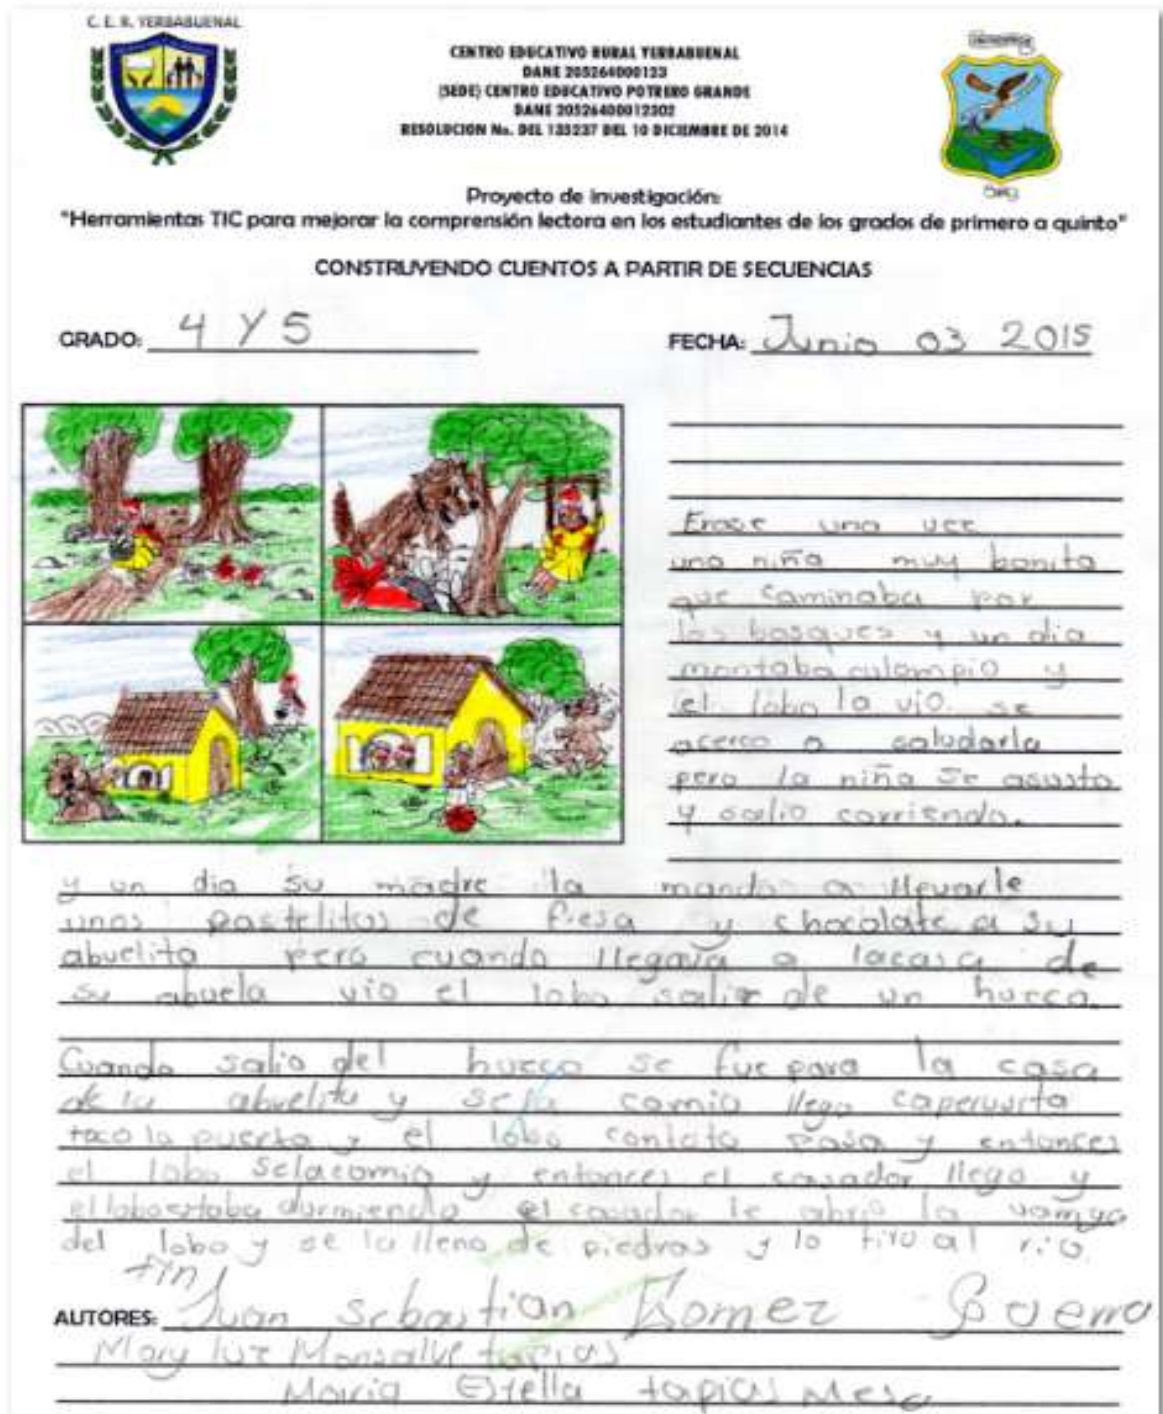 C. E. R. YERBABUENAL
CENTRO EDUCATIVO RURAL YERBABUENAL
DANE 205264000123
(SEDE) CENTRO EDUCATIVO POTRERO GRANDE
DANE 20526400012302
RESOLUCION No. DEL 135237 DEL 10 DICIEMBRE DE 2014
Proyecto de investigación:
"Herramientas TIC para mejorar la comprensión lectora en los estudiantes de los grados de primero a quinto"
CONSTRUYENDO CUENTOS A PARTIR DE SECUENCIAS
GRADO: 4 Y 5
FECHA: Junio 03 2015
Erase una vez
una niña muy bonita
que caminaba por
los bosques y un dia
montaba culompio y
el lobo la vio. se
acerco a saludarla
pero la niña se asusto
y salio corriendo.
y un dia su madre la mando a llevarle
unos pastelitos de fresa y chocolate a su
abuelita pero cuando llegava a lacasa de
su abuela vio el lobo salir de un hueco.
Cuando salio del hueco se fue para la casa
de la abuelita y sela comio llego caperusita
toco la puerta y el lobo contesto pasa y entonces
el lobo selacomio y entonces el casador llego y
el lobo estaba durmiendo el casador le abrio la
del lobo y se la lleno de piedras y lo tiro al rio.
fin
AUTORES: Juan Sebastian Gomez Guerra
Mary luz Monsalve tapias
Maria Estella tapias Mesa